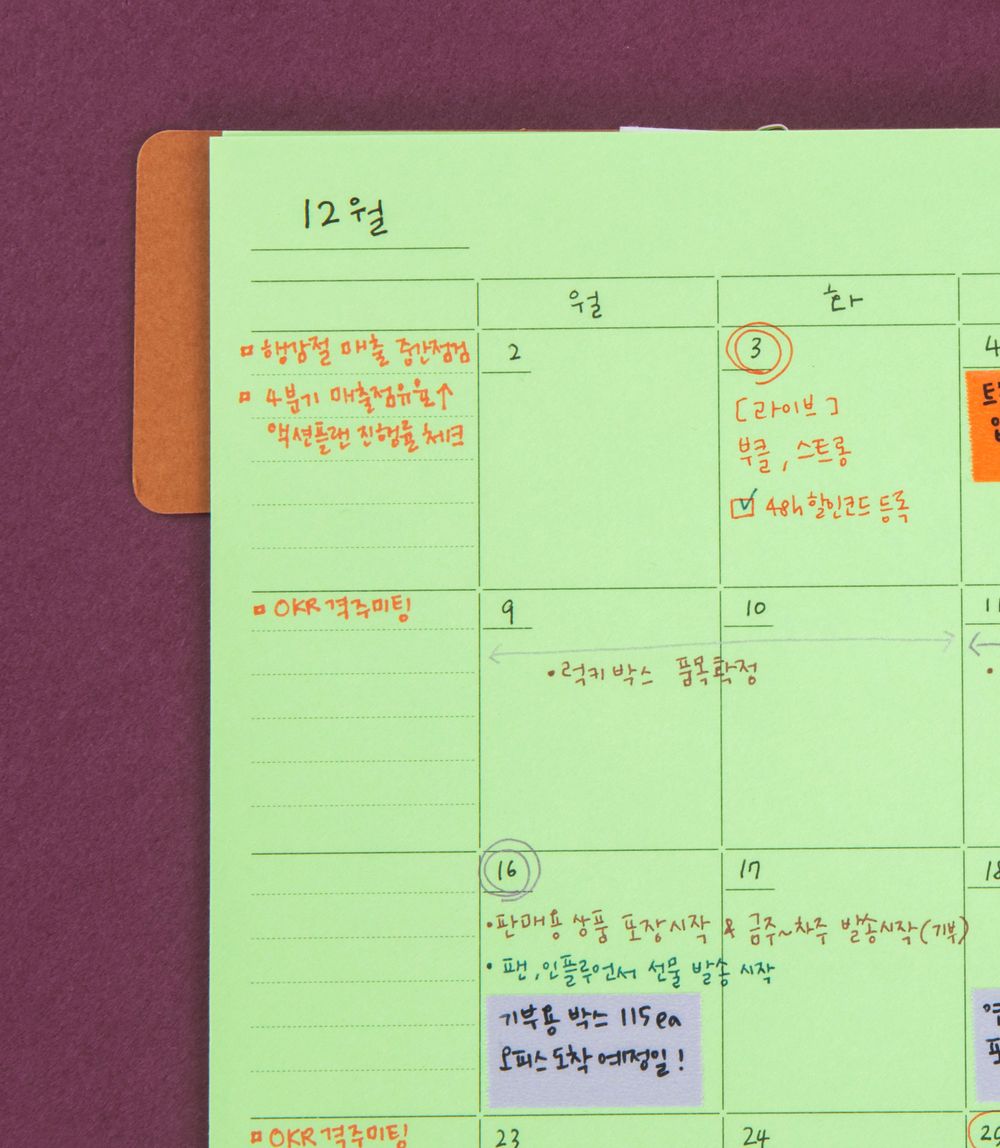 12월
월 화
▫ 행감절 매출 중간점검
▫ 4분기 매출점유율↑
액션플랜 진행률 체크
2
3
[라이브]
부클, 스트롱
☑ 48h 할인코드 등록
4
▫ OKR 격주미팅
9
10
11
• 럭키박스 품목확정
16
17
18
• 판매용 상품 포장시작 & 금주~차주 발송시작(기부)
• 팬, 인플루언서 선물 발송 시작
기부용 박스 115ea
오피스 도착 예정일!
▫ OKR 격주미팅
23
24